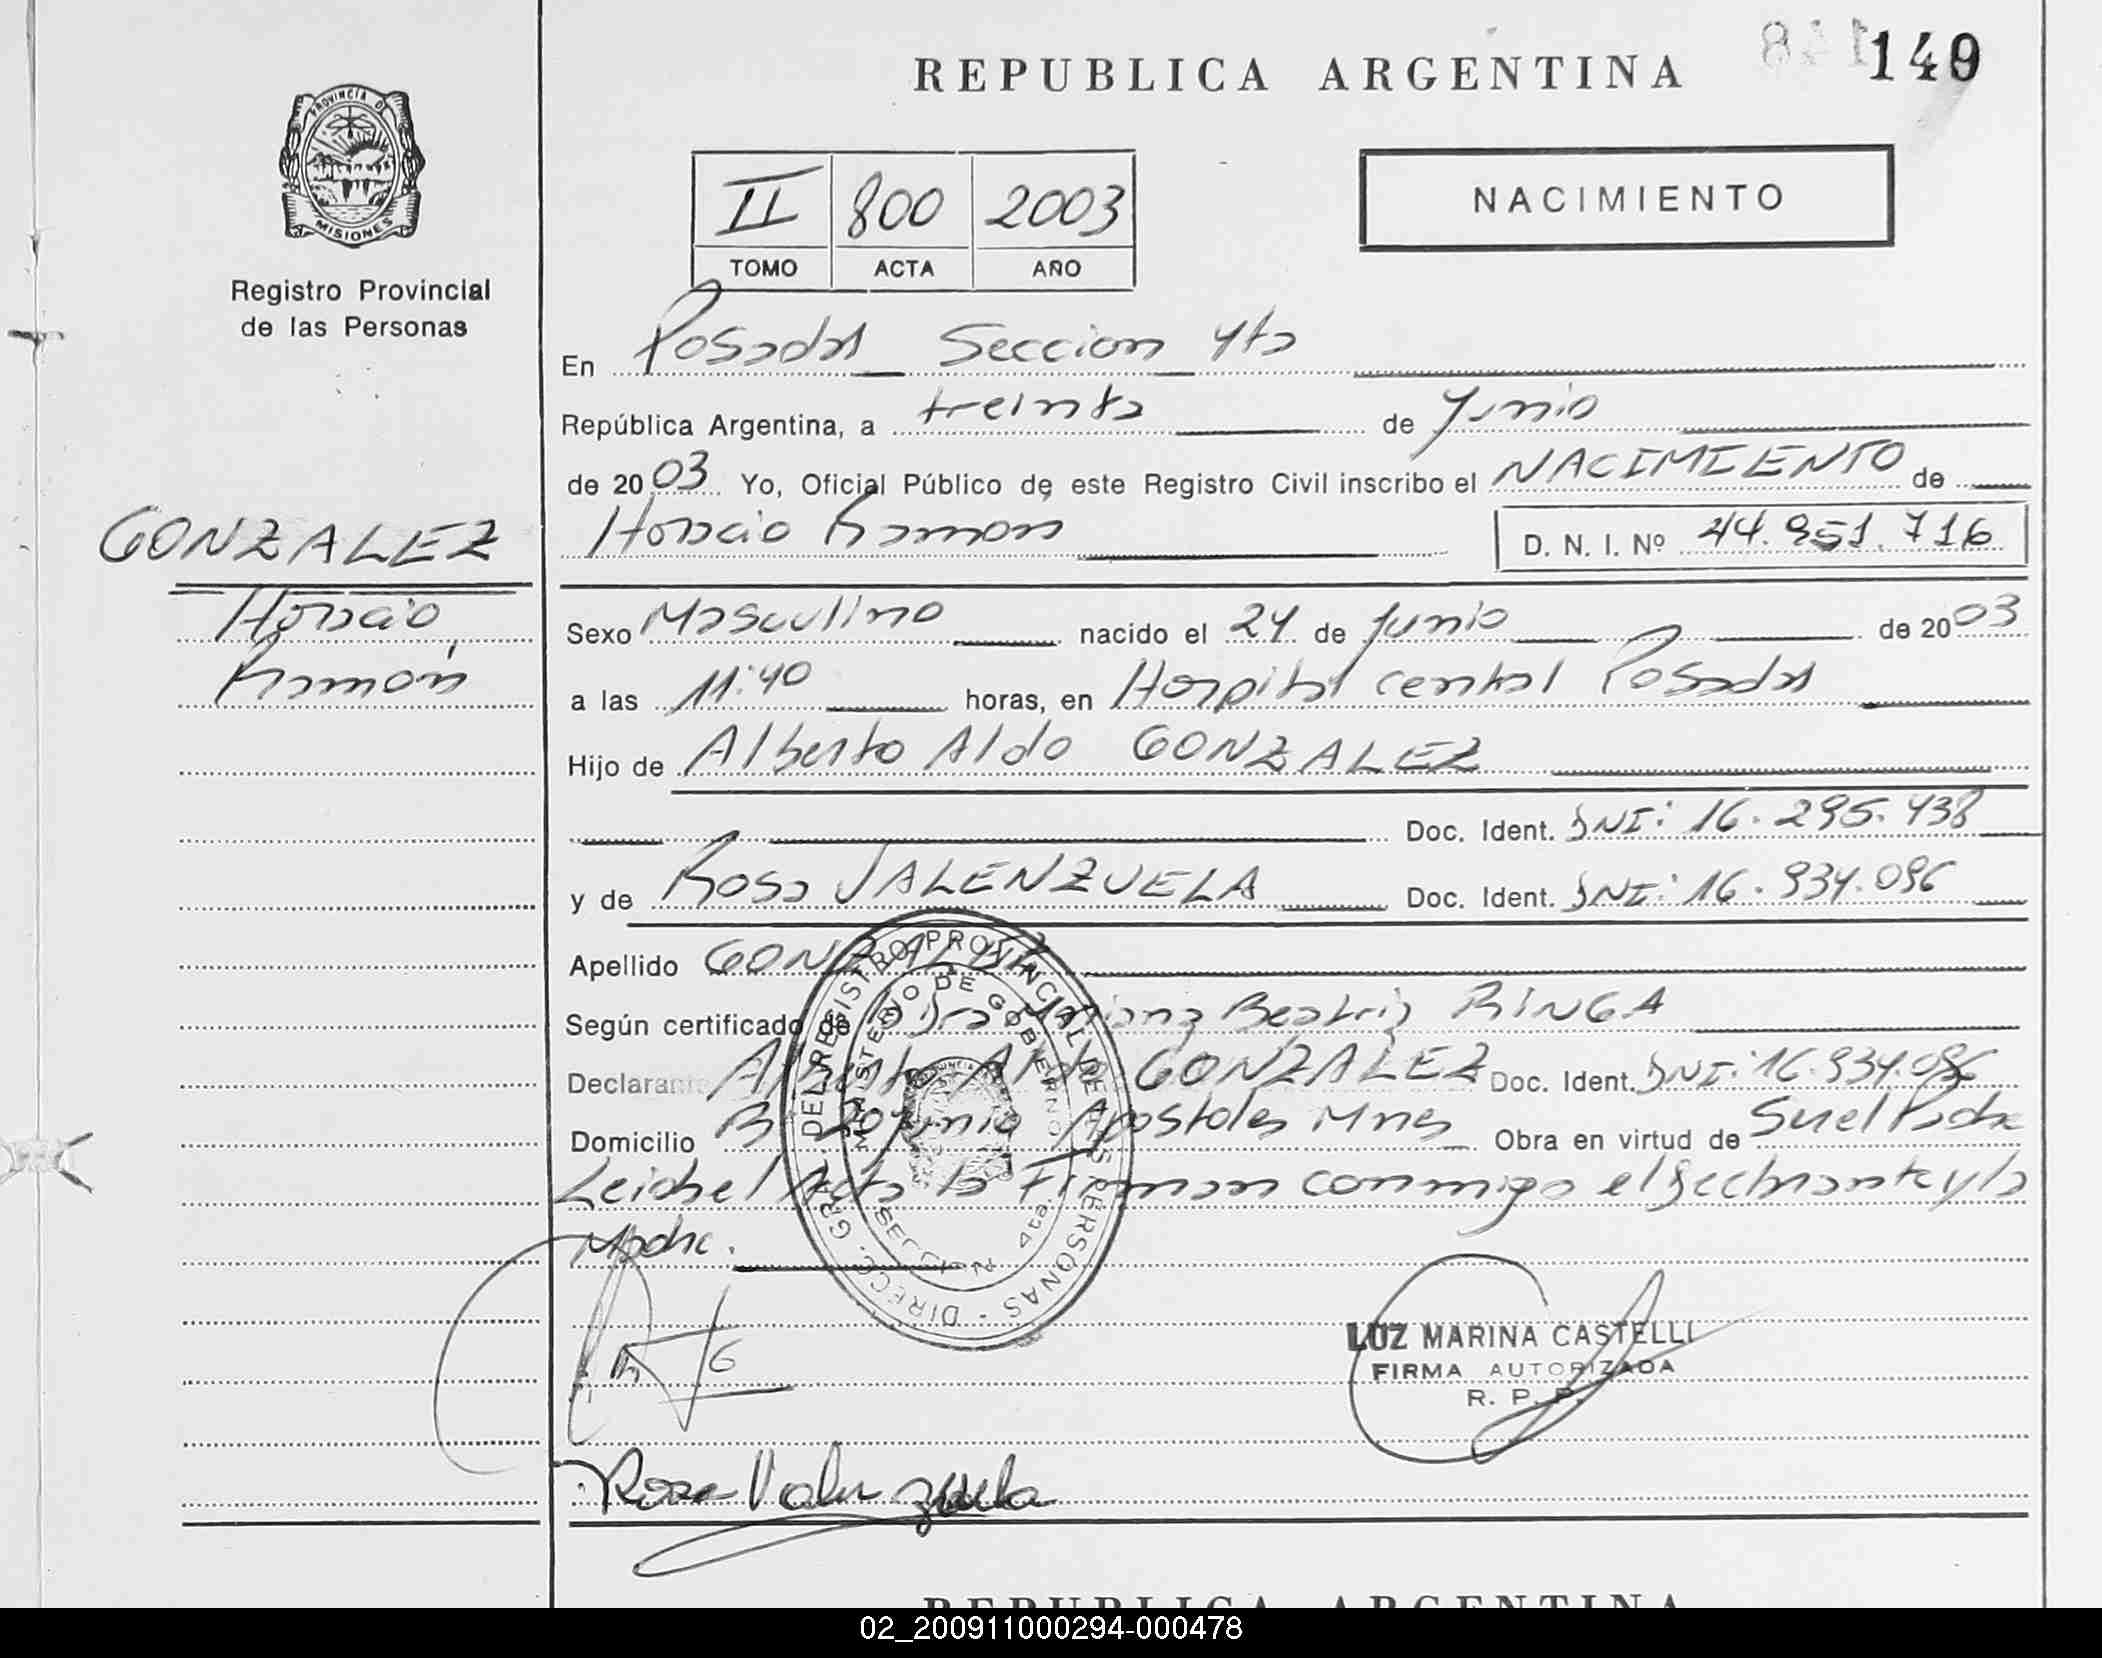 REPUBLICA ARGENTINA
149
PROVINCIA D
MISIONES
Registro Provincial
de las Personas
II 800 2003
TOMO ACTA AÑO
NACIMIENTO
En Posadas Seccion 4ta
República Argentina, a treinta de Junio
de 2003 Yo, Oficial Público de este Registro Civil inscribo el NACIMIENTO de
Horacio Ramon D. N. I. Nº 44.951.716
GONZALEZ
Horacio
Ramón
Sexo Masculino nacido el 24 de Junio de 2003
a las 11:40 horas, en Hospital central Posadas
Hijo de Alberto Aldo GONZALEZ
Doc. Ident. DNI: 16.295.438
y de Rosa VALENZUELA Doc. Ident. DNI: 16.934.096
Apellido GONZALEZ
Según certificado de Mariana Beatriz RINGA
Declarante Alberto Aldo GONZALEZ Doc. Ident. DNI: 16.934.096
Domicilio B 20 Junio Apostoles Mnes Obra en virtud de Ser el Padre
Leida el Acta la Firman conmigo el declarante y la
Madre.
DIRECC. GRAL. DEL REGISTRO PROVINCIAL DE LAS PERSONAS
MINISTERIO DE GOBIERNO
4ta.
LUZ MARINA CASTELLI
FIRMA AUTORIZADA
R. P. P.
Rosa Valenzuela
REPUBLICA ARGENTINA
02_200911000294-000478